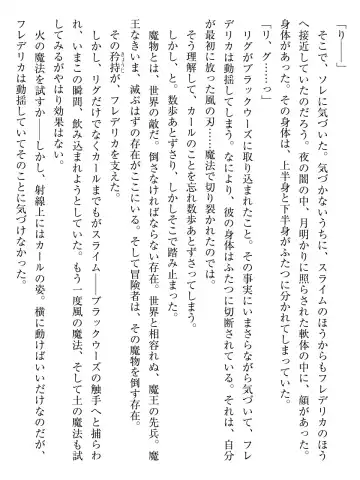 「り――」
そこで、ソレに気づいた。気づかないうちに、スライムのほうからもフレデリカのほう
へ接近していたのだろう。夜の闇の中、月明かりに照らされた軟体の中に、顔があった。
身体があった。その身体は、上半身と下半身がふたつに分かれてしまっていた。
「リ、グ……っ」
リグがブラックウーズに取り込まれたこと。その事実にいまさらながら気づいて、フレ
デリカは動揺してしまう。なにより、彼の身体はふたつに切断されている。それは、自分
が最初に放った風の刃……魔法で切り裂かれたのでは。
そう理解して、カールのことを忘れ数歩あとずさってしまう。
しかし、と。数歩あとずさり、しかしそこで踏み止まった。
魔物とは、世界の敵だ。倒さなければならない存在。世界と相容れぬ、魔王の先兵。魔
王なきいま、滅ぶはずの存在がここにいる。そして冒険者は、その魔物を倒す存在。
その矜持が、フレデリカを支えた。
しかし、リグだけでなくカールまでもがスライム――ブラックウーズの触手へと捕らわ
れ、いまこの瞬間、飲み込まれようとしていた。もう一度風の魔法、そして土の魔法も試
してみるがやはり効果はない。
火の魔法を試すか――しかし、射線上にはカールの姿。横に動けばいいだけなのだが、
フレデリカは動揺していてそのことに気づけなかった。